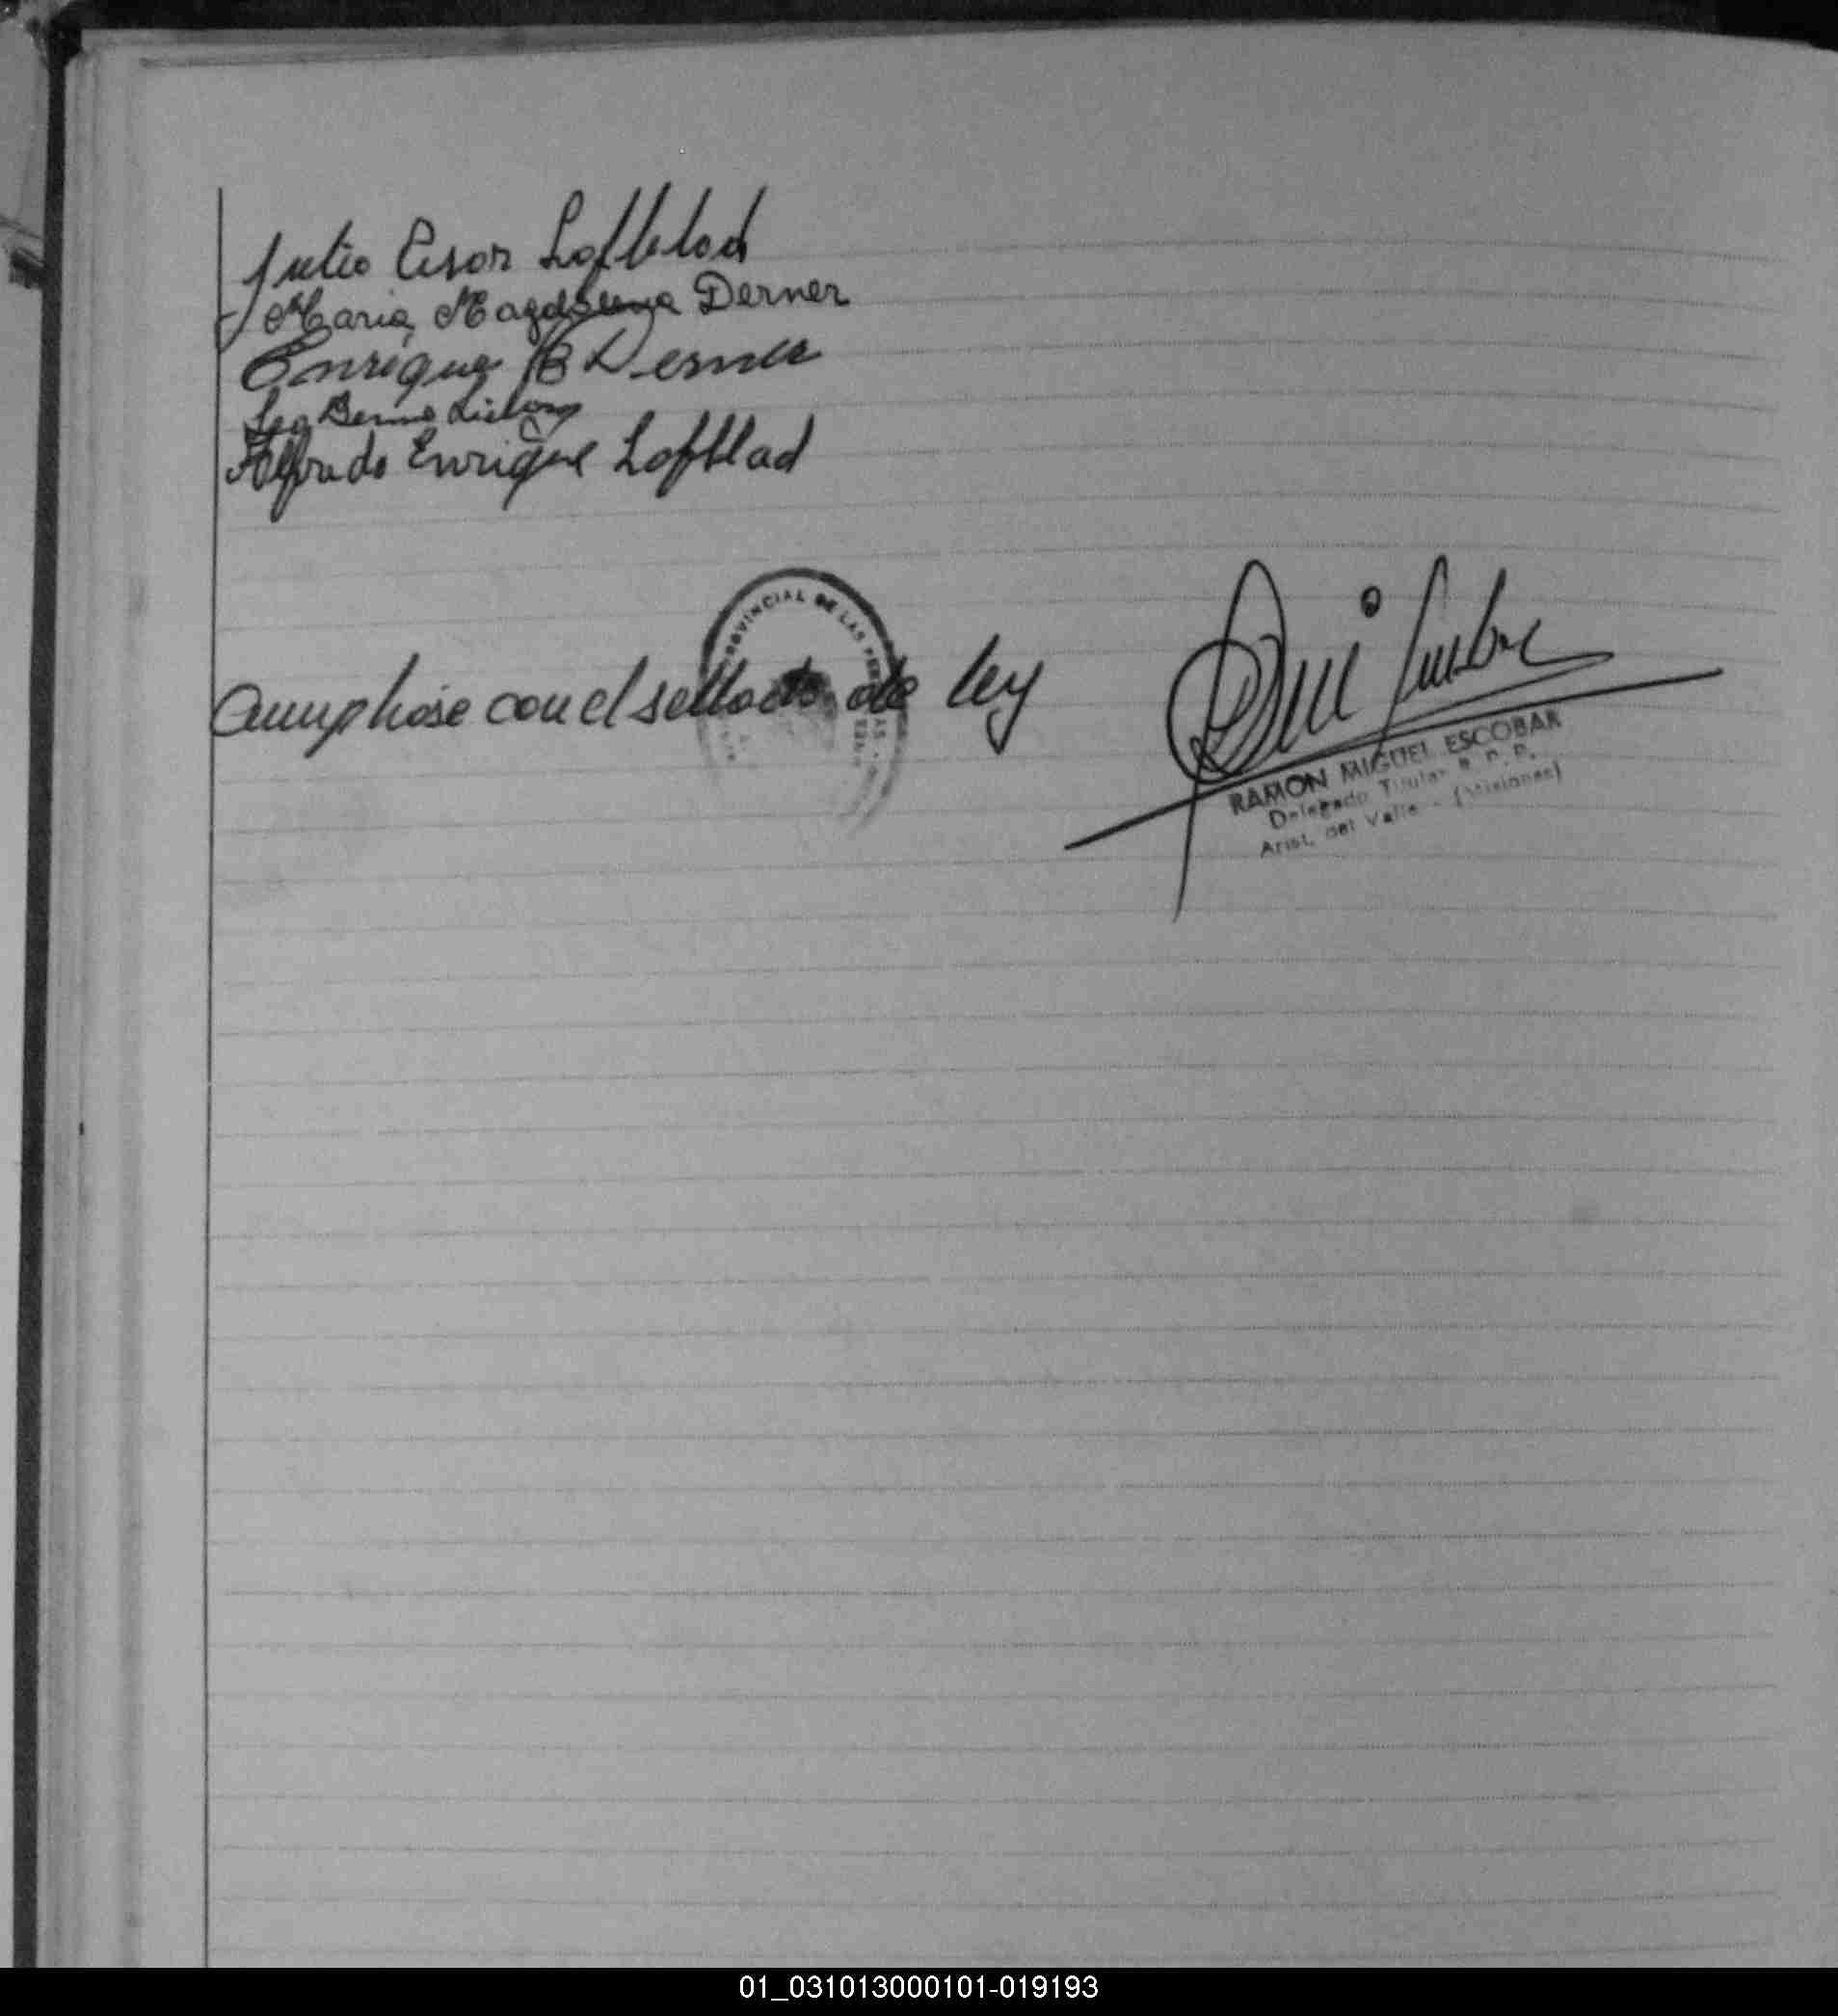 Julio Cesar Lofblad
Maria Magdalena Derner
Enrique B Derner
Alfredo Enrique Lofblad
PROVINCIAL DE LAS
Cumpliose con el sellado de ley
RAMON MIGUEL ESCOBAR
Delegado Titular R. P. P.
Arist. del Valle - (Misiones)
01_031013000101-019193